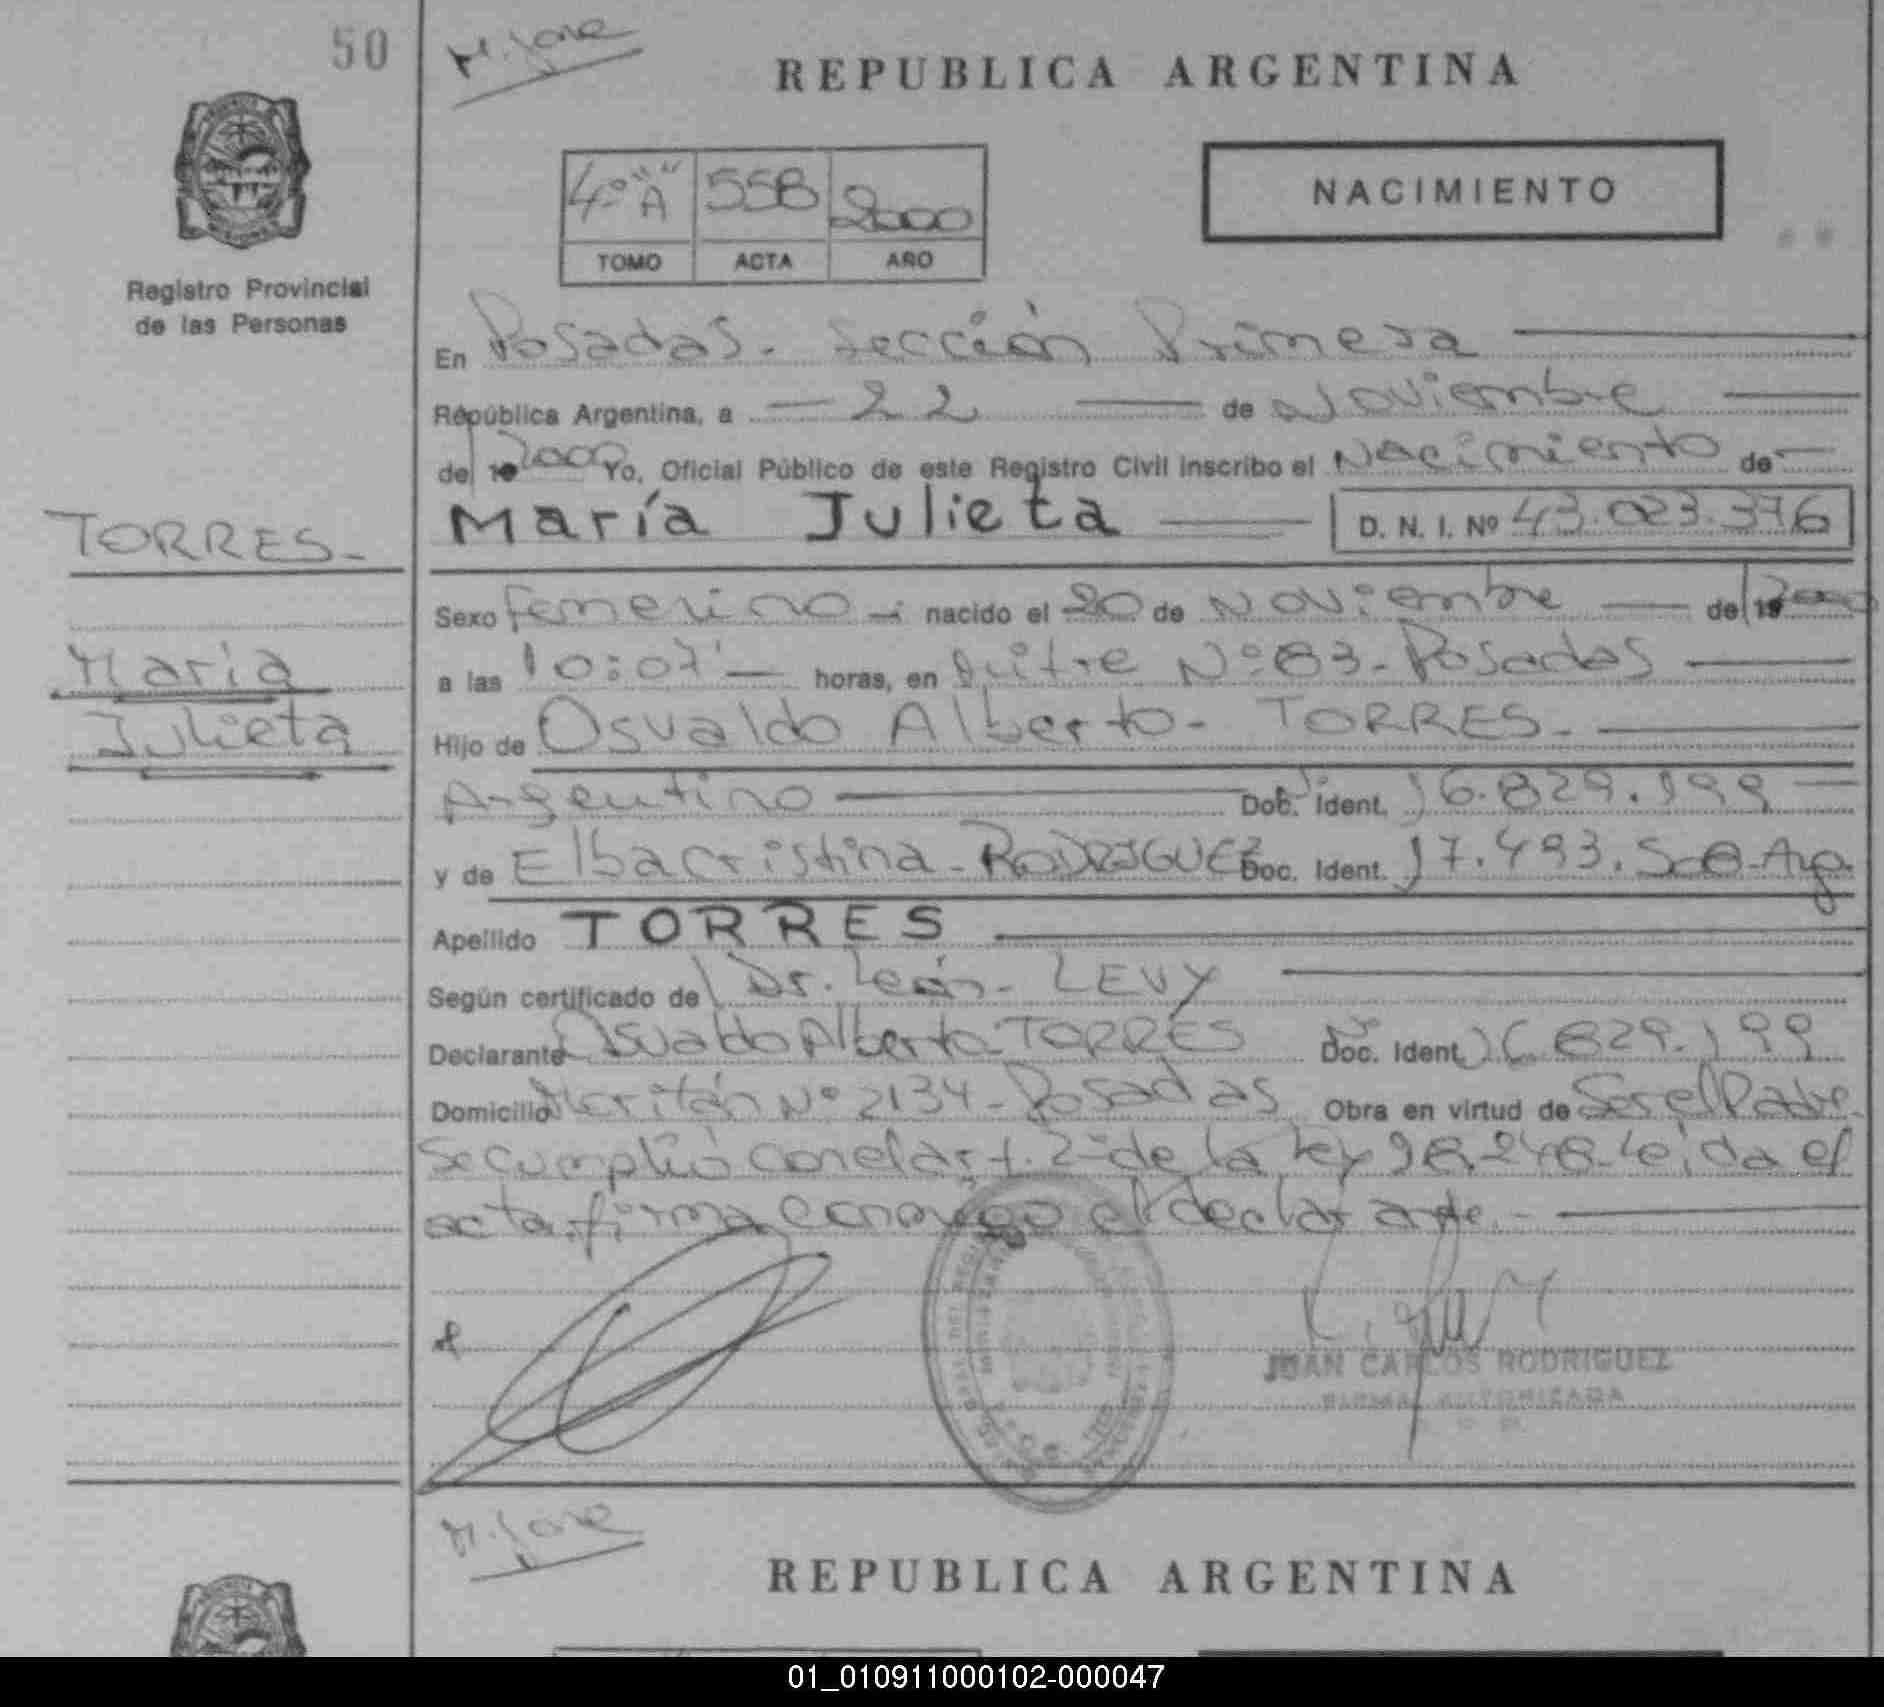 50
M. Jose
REPUBLICA ARGENTINA
4º "A" 558 2000
TOMO ACTA AÑO
NACIMIENTO
Registro Provincial
de las Personas
En Posadas. Sección Primera
República Argentina, a 22 de Noviembre
de 19 2000 Yo, Oficial Público de este Registro Civil inscribo el Nacimiento de
María Julieta D. N. I. Nº 43.023.376
TORRES
Sexo femenino nacido el 20 de Noviembre de 19 2000
María
a las 10:07' horas, en Nº 83 - Posadas
Julieta
Hijo de Osvaldo Alberto - TORRES.
Argentino Doc. Ident. 16.829.199
y de Elba Cristina - RODRIGUEZ Doc. Ident. 17.493.508 - Arg.
Apellido TORRES
Según certificado de Dr. León - LEVY
Declarante Osvaldo Alberto TORRES Doc. Ident. 16.829.199
Domicilio Nº 2134 - Posadas Obra en virtud de Ser el Padre.
Se cumplió con el art. 2º de la Ley 18.248. Leída el
acta, firma conmigo el declarante. -
JUAN CARLOS RODRIGUEZ
FIRMA AUTORIZADA
M. Jose
REPUBLICA ARGENTINA
01_010911000102-000047